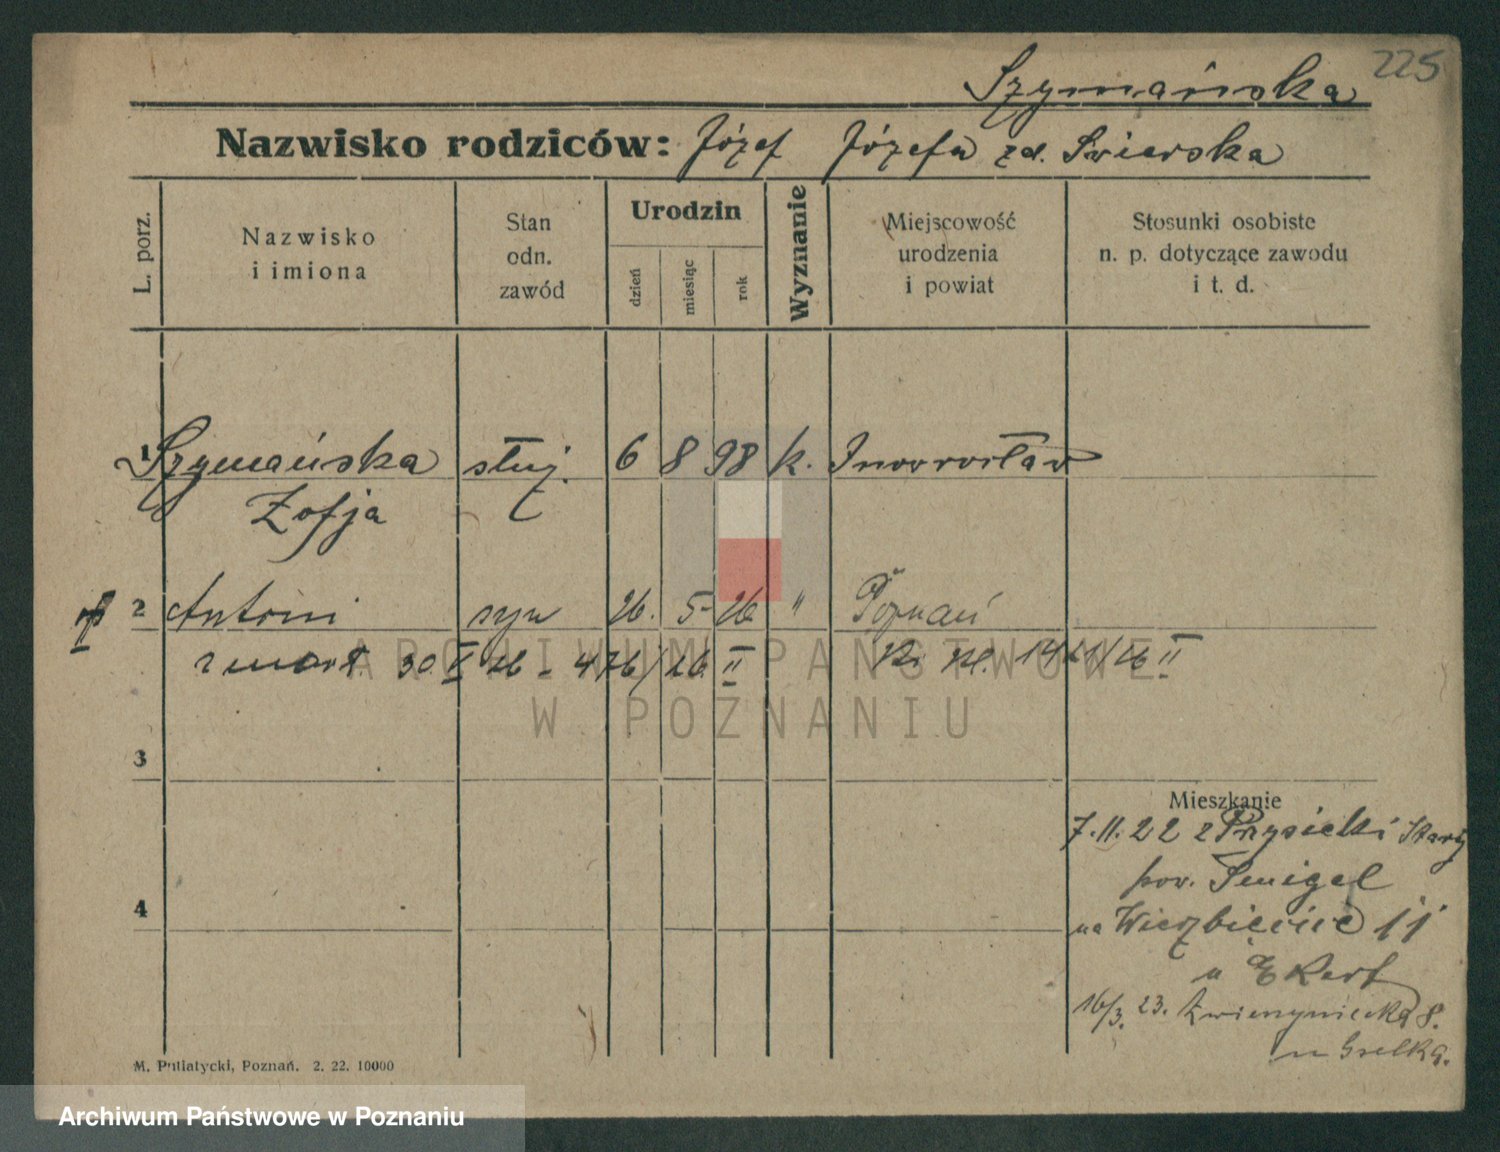 225
Szymańska
Nazwisko rodziców: Józef Józefa zd. Świerska
L. porz.
Nazwisko i imiona
Stan odn. zawód
Urodzin
dzień
miesiąc
rok
Wyznanie
Miejscowość urodzenia i powiat
Stosunki osobiste n. p. dotyczące zawodu i t. d.
1 Szymańska służ. 6 8 98 k. Inowrocław
Zofja
2 Antoni syn 26. 5 26 " Poznań
zmarł. 30. V 26 - 476/26 II 1421/26 II
3
Mieszkanie
7.11.22 z Przysieki Starej
pow. Śmigel
4
na Wierzbięcice 11
u Ekert
16/3. 23. Zwierzyniecka 8.
u Grelka.
M. Putiatycki, Poznań. 2. 22. 10000
ARCHIWUM PAŃSTWOWE
W POZNANIU
Archiwum Państwowe w Poznaniu